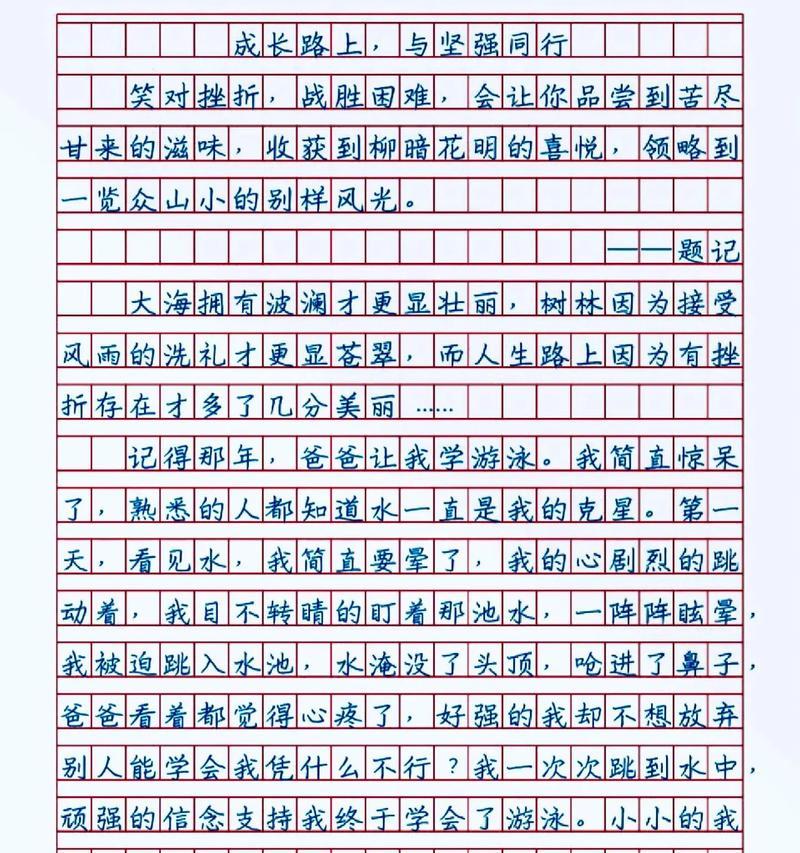 成长路上，与坚强同行
笑对挫折，战胜困难，会让你品尝到苦尽
甘来的滋味，收获到柳暗花明的喜悦，领略到
一览众山小的别样风光。
——题记
大海拥有波澜才更显壮丽，树林因为接受
风雨的洗礼才更显苍翠，而人生路上因为有挫
折存在才多了几分美丽……
记得那年，爸爸让我学游泳。我简直惊呆
了，熟悉的人都知道水一直是我的克星。第一
天，看见水，我简直要晕了，我的心剧烈的跳
动着，我目不转睛的盯着那池水，一阵阵眩晕，
我被迫跳入水池，水淹没了头顶，呛进了鼻子，
爸爸看着都觉得心疼了，好强的我却不想放弃
别人能学会我凭什么不行？我一次次跳到水中，
顽强的信念支持我终于学会了游泳。小小的我